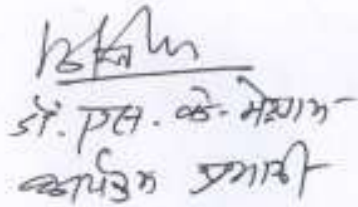 डॉ. एस. के. मेश्राम
कार्यक्रम प्रभारी